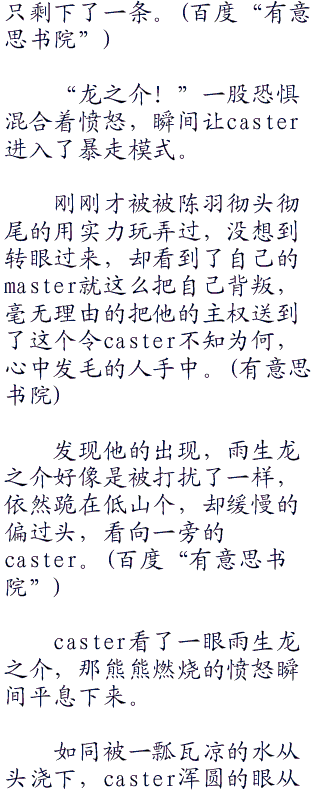 只剩下了一条。(百度“有意
思书院”)
“龙之介！”一股恐惧
混合着愤怒，瞬间让caster
进入了暴走模式。
刚刚才被被陈羽彻头彻
尾的用实力玩弄过，没想到
转眼过来，却看到了自己的
master就这么把自己背叛，
毫无理由的把他的主权送到
了这个令caster不知为何，
心中发毛的人手中。(有意思
书院)
发现他的出现，雨生龙
之介好像是被打扰了一样，
依然跪在低山个，却缓慢的
偏过头，看向一旁的
caster。(百度“有意思书
院”)
caster看了一眼雨生龙
之介，那熊熊燃烧的愤怒瞬
间平息下来。
如同被一瓢瓦凉的水从
头浇下，caster浑圆的眼从